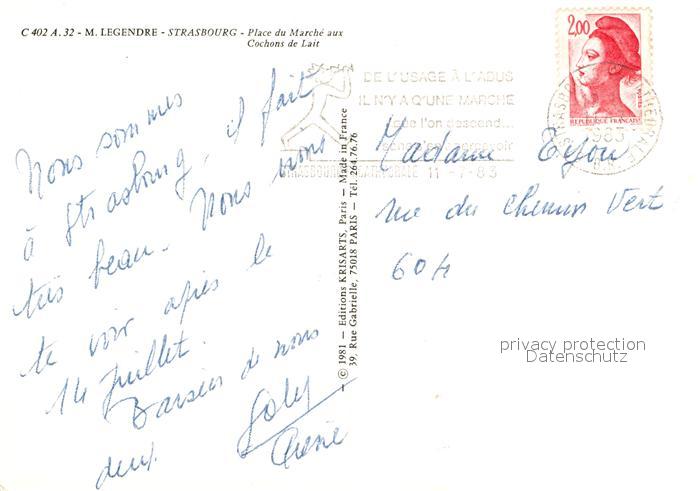 C 402 A. 32 - M. LEGENDRE - STRASBOURG - Place du Marché aux
Cochons de Lait
2,00
REPUBLIQUE FRANÇAISE
DE L'USAGE À L'ABUS
IL N'Y A Q'UNE MARCHE
que l'on descend...
STRASBOURG CATHEDRALE 11-7-83
Nous sommes
à Strasbourg, il fait
très beau. Nous irons
te voir après le
14 Juillet.
Baisers de nous
deux.
© 1981 — Editions KRISARTS, Paris — Made in France
39, Rue Gabrielle, 75018 PARIS — Tél. 264.76.76
Madame
rue du Chemin Vert
604
privacy protection
Datenschutz